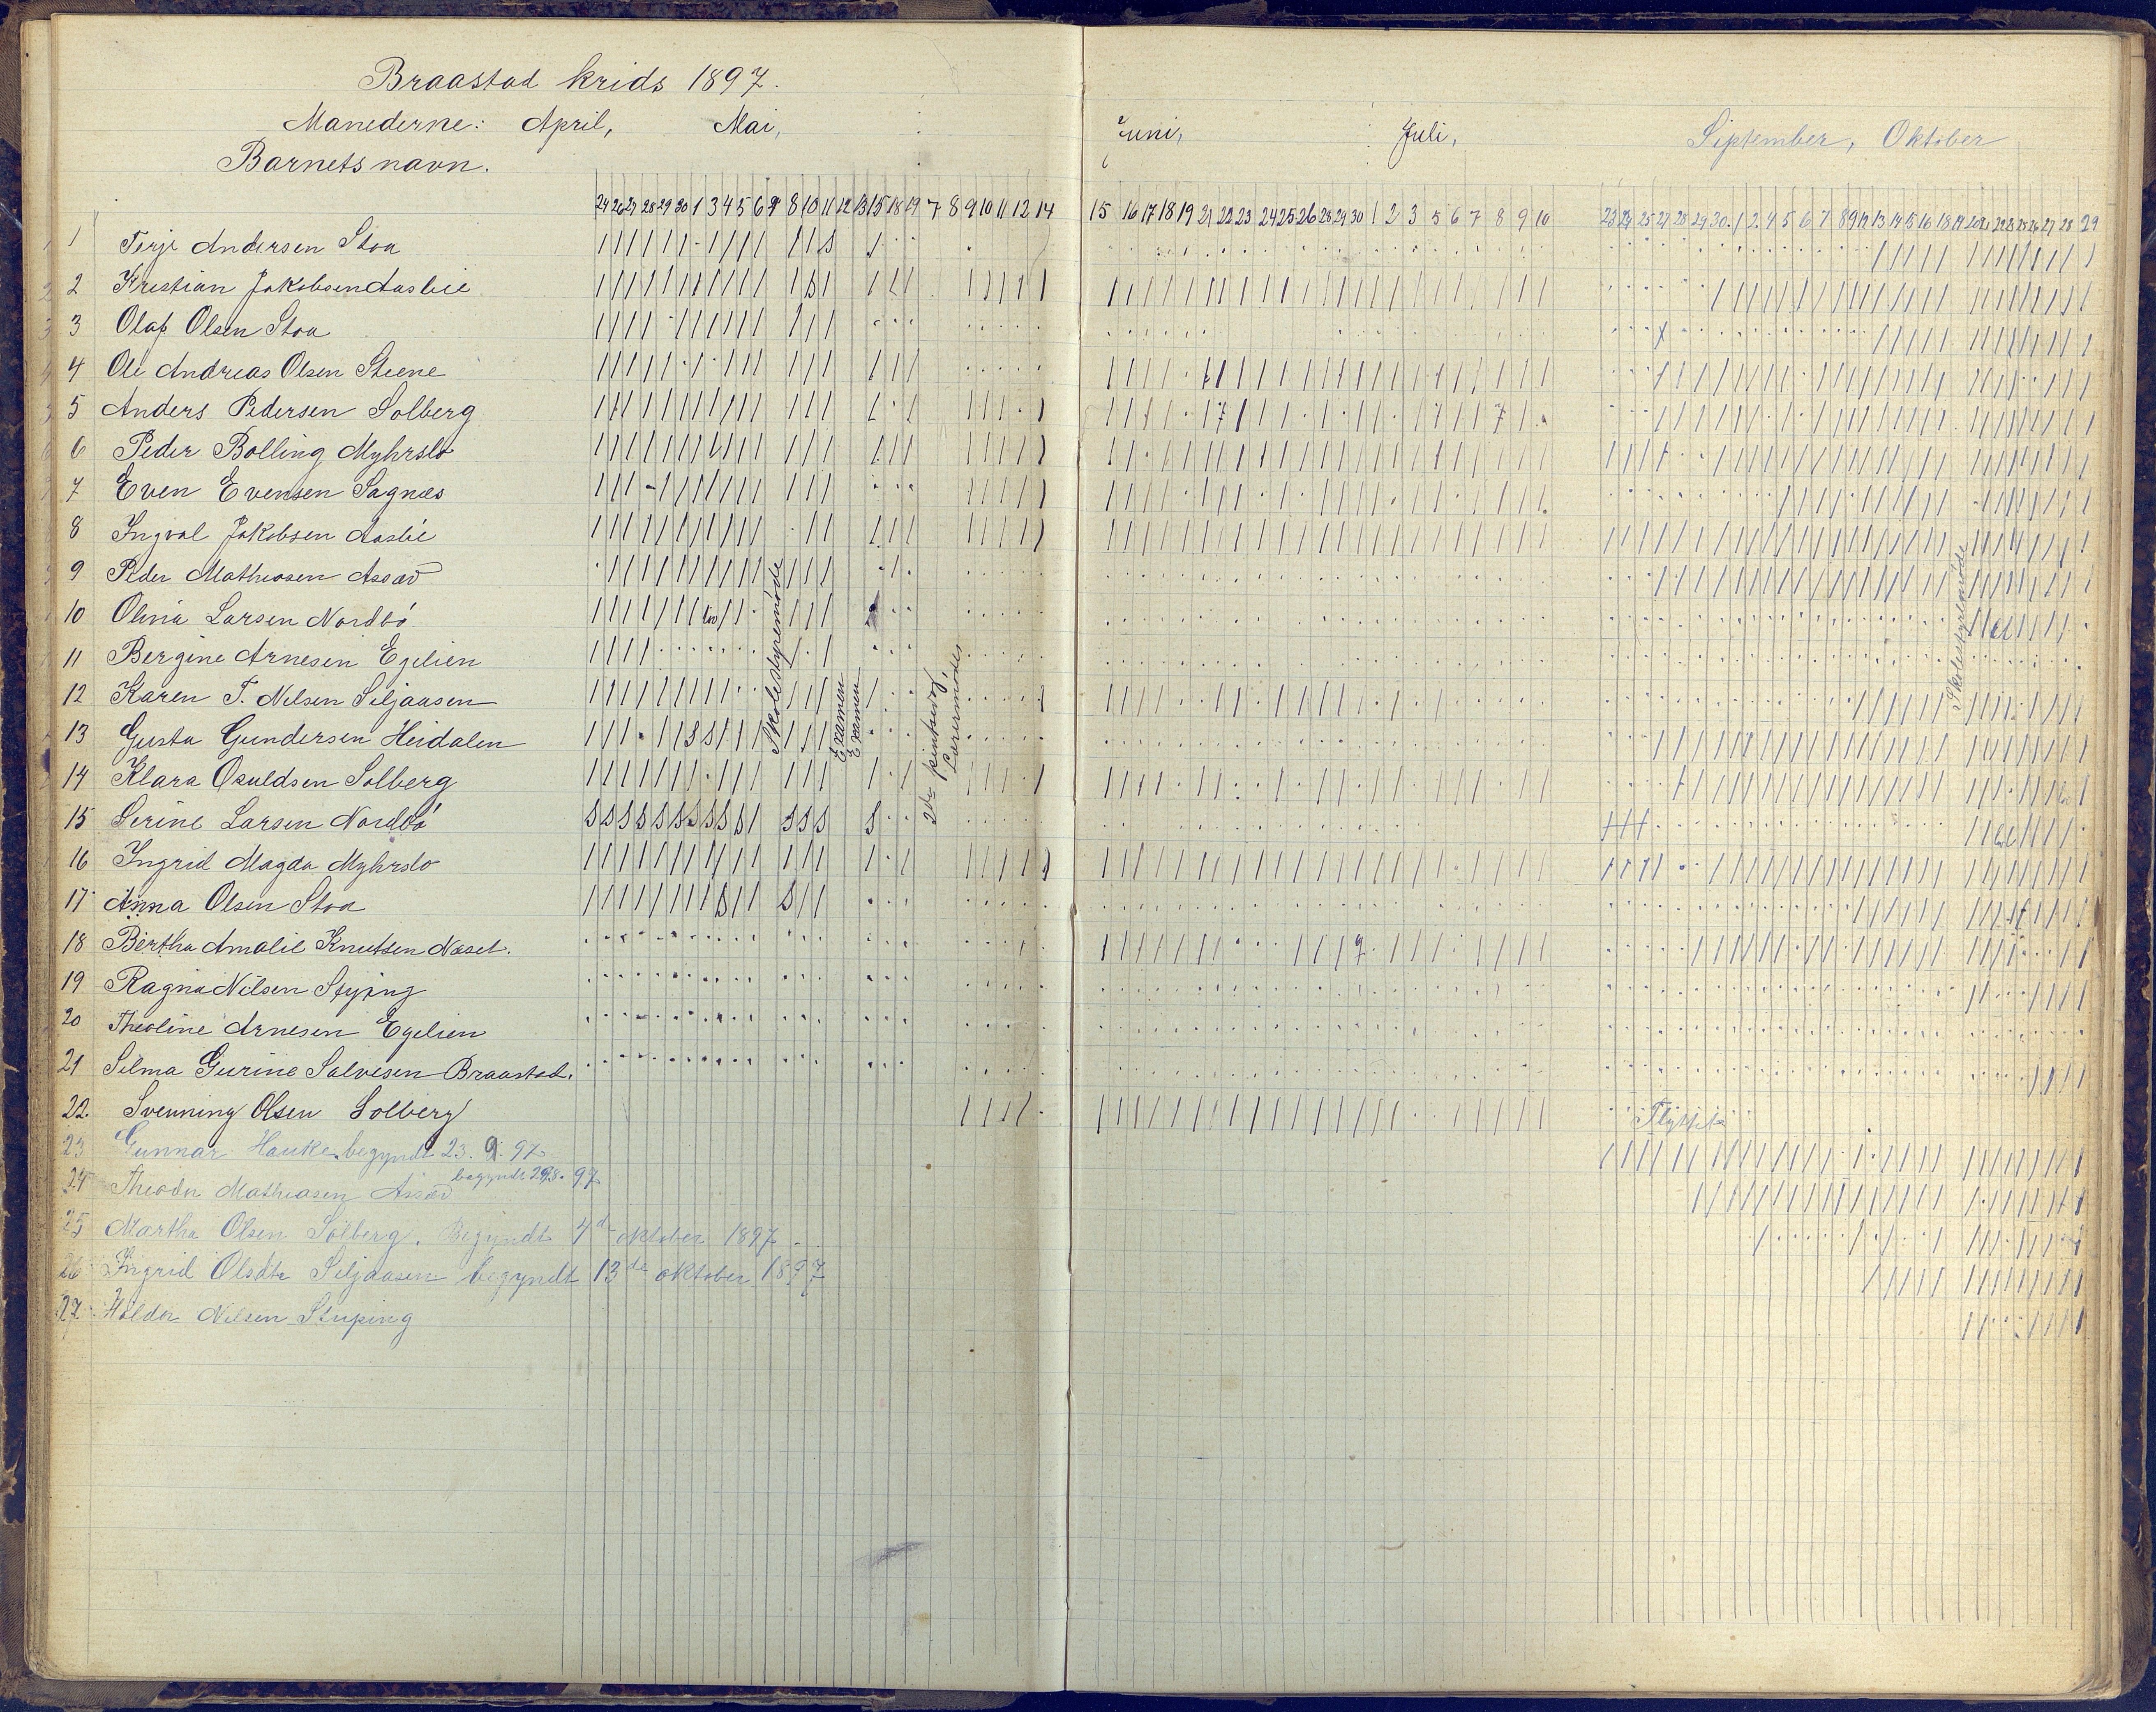 Braastad krids 1897.
Manederne: April, Mai, Juni, Juli, September, Oktober
Barnets navn.
24 26 27 28 29 30 1 3 4 5 6 7 8 10 11 12 13 15 18 19 7 8 9 10 11 12 14 15 16 17 18 19 21 22 23 24 25 26 28 29 30 1 2 3 5 6 7 8 9 10 23 24 25 27 28 29 30 1 2 4 5 6 7 8 9 12 13 14 15 16 18 19 20 21 22 23 25 26 27 28 29
1 Terje Andersen Stoa
2 Kristian Jakobsen Aasbie
3 Olaf Olsen Stoa
4 Ole Andreas Olsen Steene
5 Anders Pedersen Solberg
6 Peder Bolling Myhrslo
7 Even Evensen Sagnæs
8 Ingval Jakobsen Aasbie
9 Peder Mathiasen Assæv
10 Olina Larsen Nordbó
11 Bergine Arnesen Egelien
12 Karen T. Nilsen Seljaasen
13 Gusta Gundersen Heidalen
14 Klara Osuldsen Solberg
15 Serine Larsen Nordbó
16 Ingrid Magda Myhrslo
17 Anna Olsen Stoa
18 Bertha Amalie Knutsen Næset.
19 Ragna Nilsen
20 Theoline Arnesen Egelien
21 Selma Gurine Salvesen Braastad.
22. Svenning Olsen Solberg
Flyttet
23 Gunnar Hauke begyndt 23. 9. 97
24 Theodor Mathiasen Assæv begyndt 29 97
25 Martha Olsen Solberg. Begyndt 4de oktober 1897
26 Ingrid Olsdtr Seljaasen begyndt 13de oktober 1897
27 Haldor Nilsen
Skolestyremøde
Examen
Examen
2den pintsedag
Lærermøde
Skolestyremøde